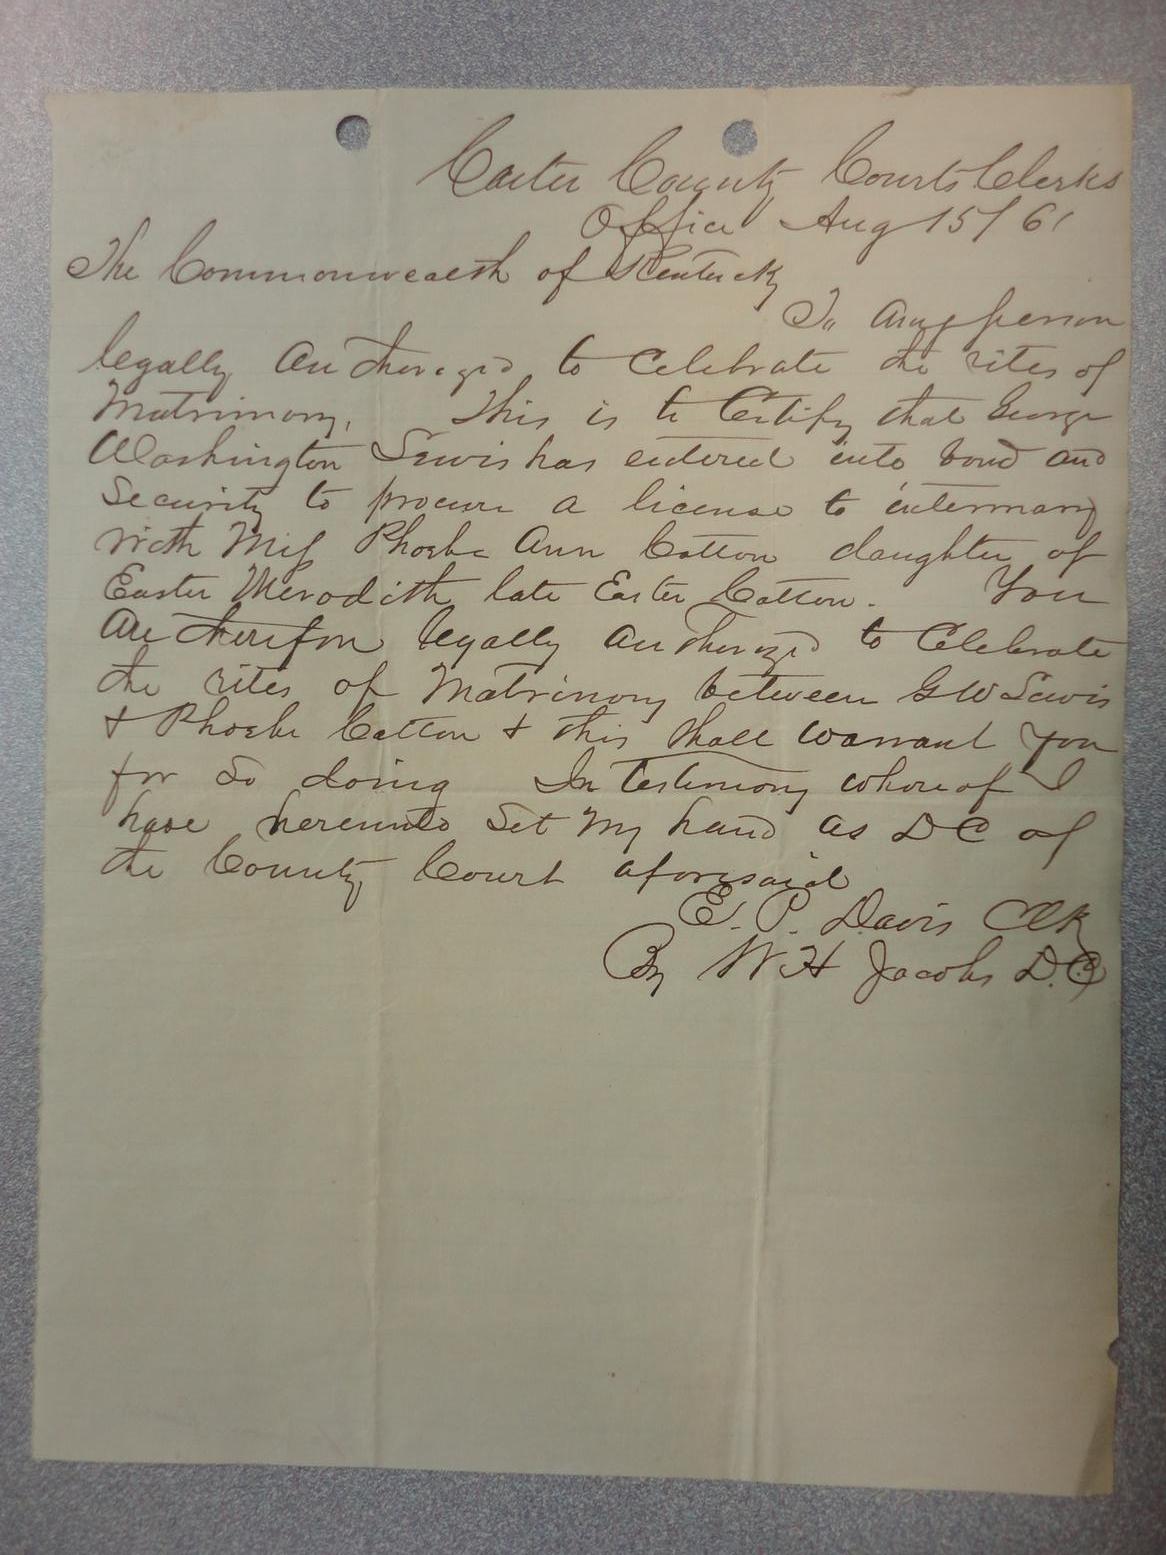 Carter County Courts Clerks
Office Aug 15/61
The Commonwealth of Kentucky
To any person
legally Authorized to Celebrate the rites of
Matrimony, This is to Certify that George
Washington Lewis has entered into bond and
Security to procure a license to intermary
with Miss Phoebe Ann Cotton daughter of
Easter Merodith late Easter Cotton. You
Are therefore legally Authorized to Celebrate
the rites of Matrimony between G W Lewis
& Phoebe Cotton & this shall warrant you
for So doing In Testimony whereof I
have hereunto Set My hand as D C of
the County Court aforesaid
E. P. Davis Clk
By W H Jacobs D.C